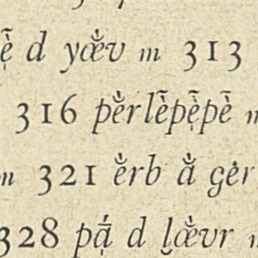 ẹ̃̀ d yœ̃̀v m 313
316 pẽ̀rlẽ̀pẹ̃̀pẽ̀ m
m 321 ẽ̀rb ã̀ gėr
328 pạ̃́ d l̮œ̃̀vr